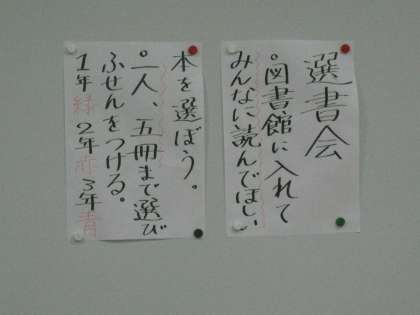 選書会
。図書館に入れて
みんなに読んでほしい
本を選ぼう。
。一人、五冊まで選び
ふせんをつける。
1年緑2年赤3年青